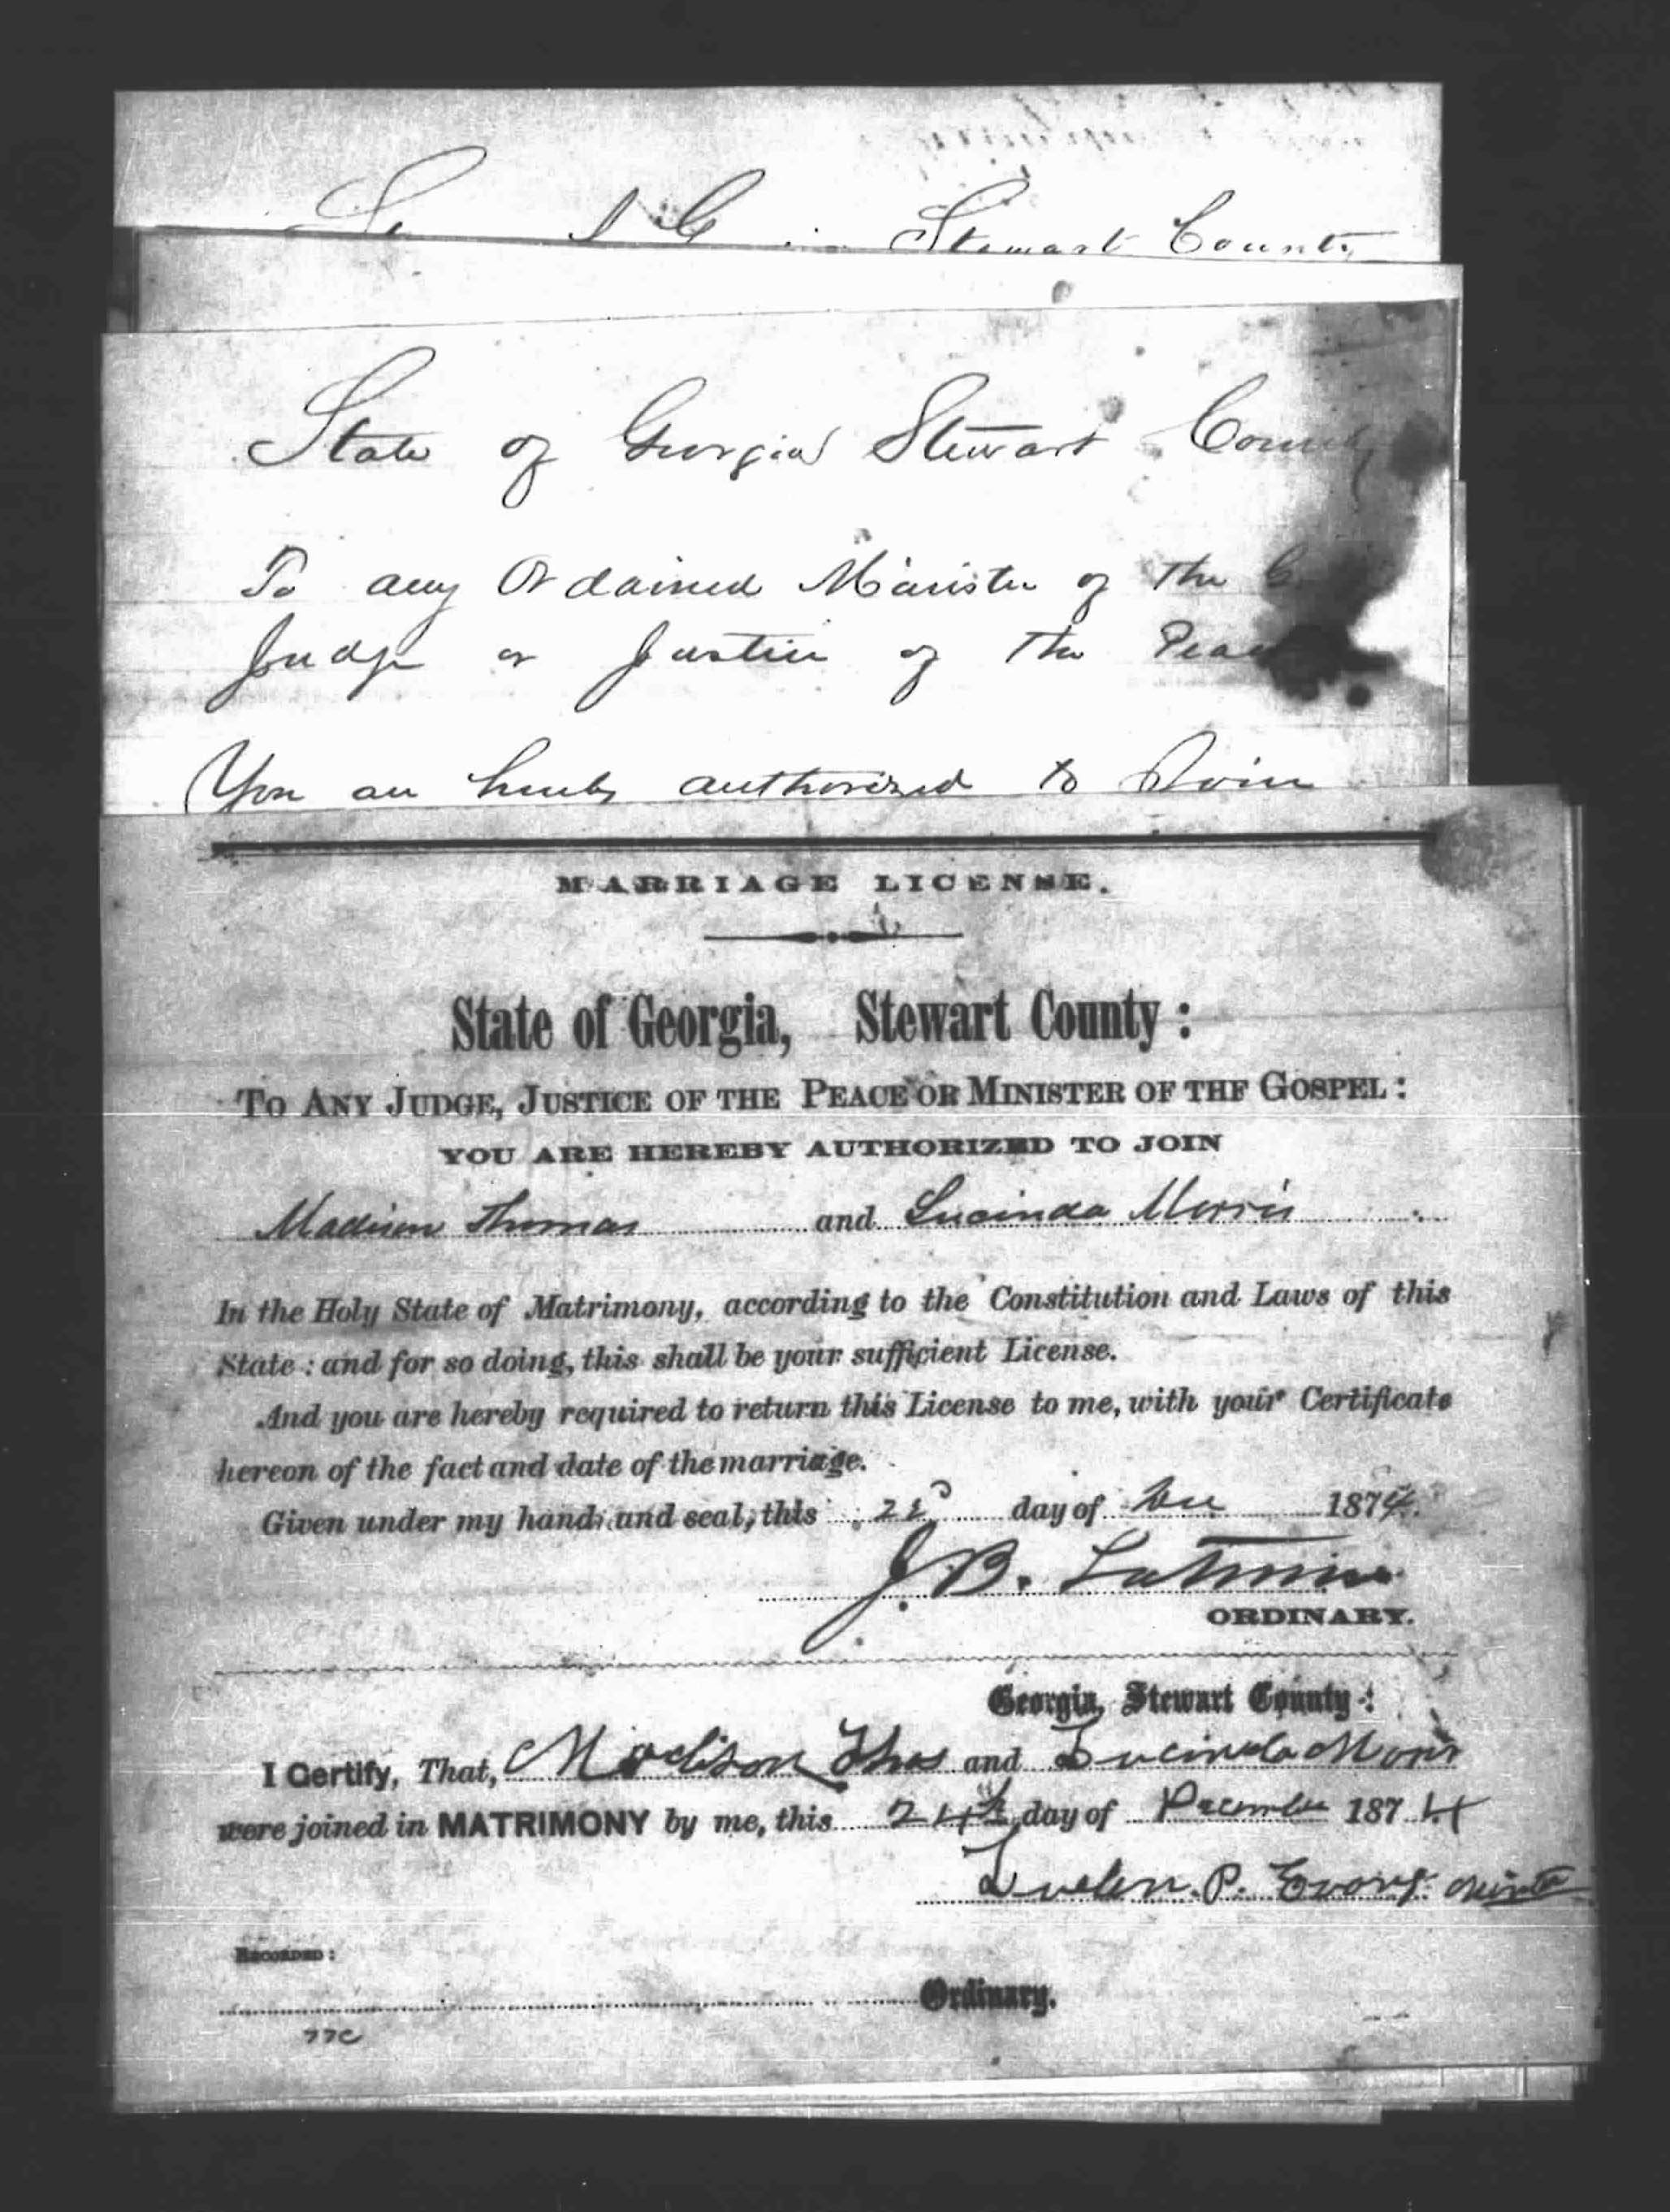 Stewart County
State of Georgia Stewart County
To any Ordained Minister of the
Judge or Justice of the Peace
You are hereby authorized to Join
MARRIAGE LICENSE.
State of Georgia, Stewart County:
TO ANY JUDGE, JUSTICE OF THE PEACE OR MINISTER OF THE GOSPEL:
YOU ARE HEREBY AUTHORIZED TO JOIN
Madison Thomas and Lucinda Morris
In the Holy State of Matrimony, according to the Constitution and Laws of this
State: and for so doing, this shall be your sufficient License.
And you are hereby required to return this License to me, with your Certificate
hereon of the fact and date of the marriage.
Given under my hand and seal, this day of Dec 1874.
J. B. Latimer
ORDINARY.
Georgia, Stewart County:
I Certify, That, Madison Thos and Lucinda Moris
were joined in MATRIMONY by me, this 24th day of December 1874
P. Evans
RECORDED:
Ordinary.
77c